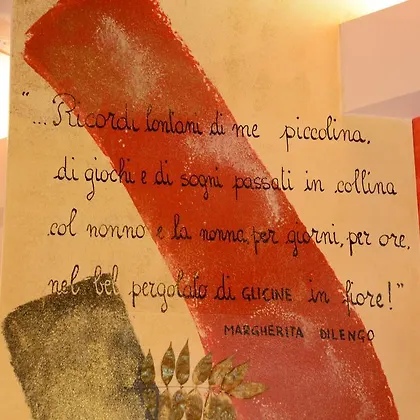 "... Ricordi lontani di me piccolina,
di giochi e di sogni passati in collina
col nonno e la nonna, per giorni, per ore,
nel bel pergolato di GLICINE in fiore!"
MARGHERITA DILENGO